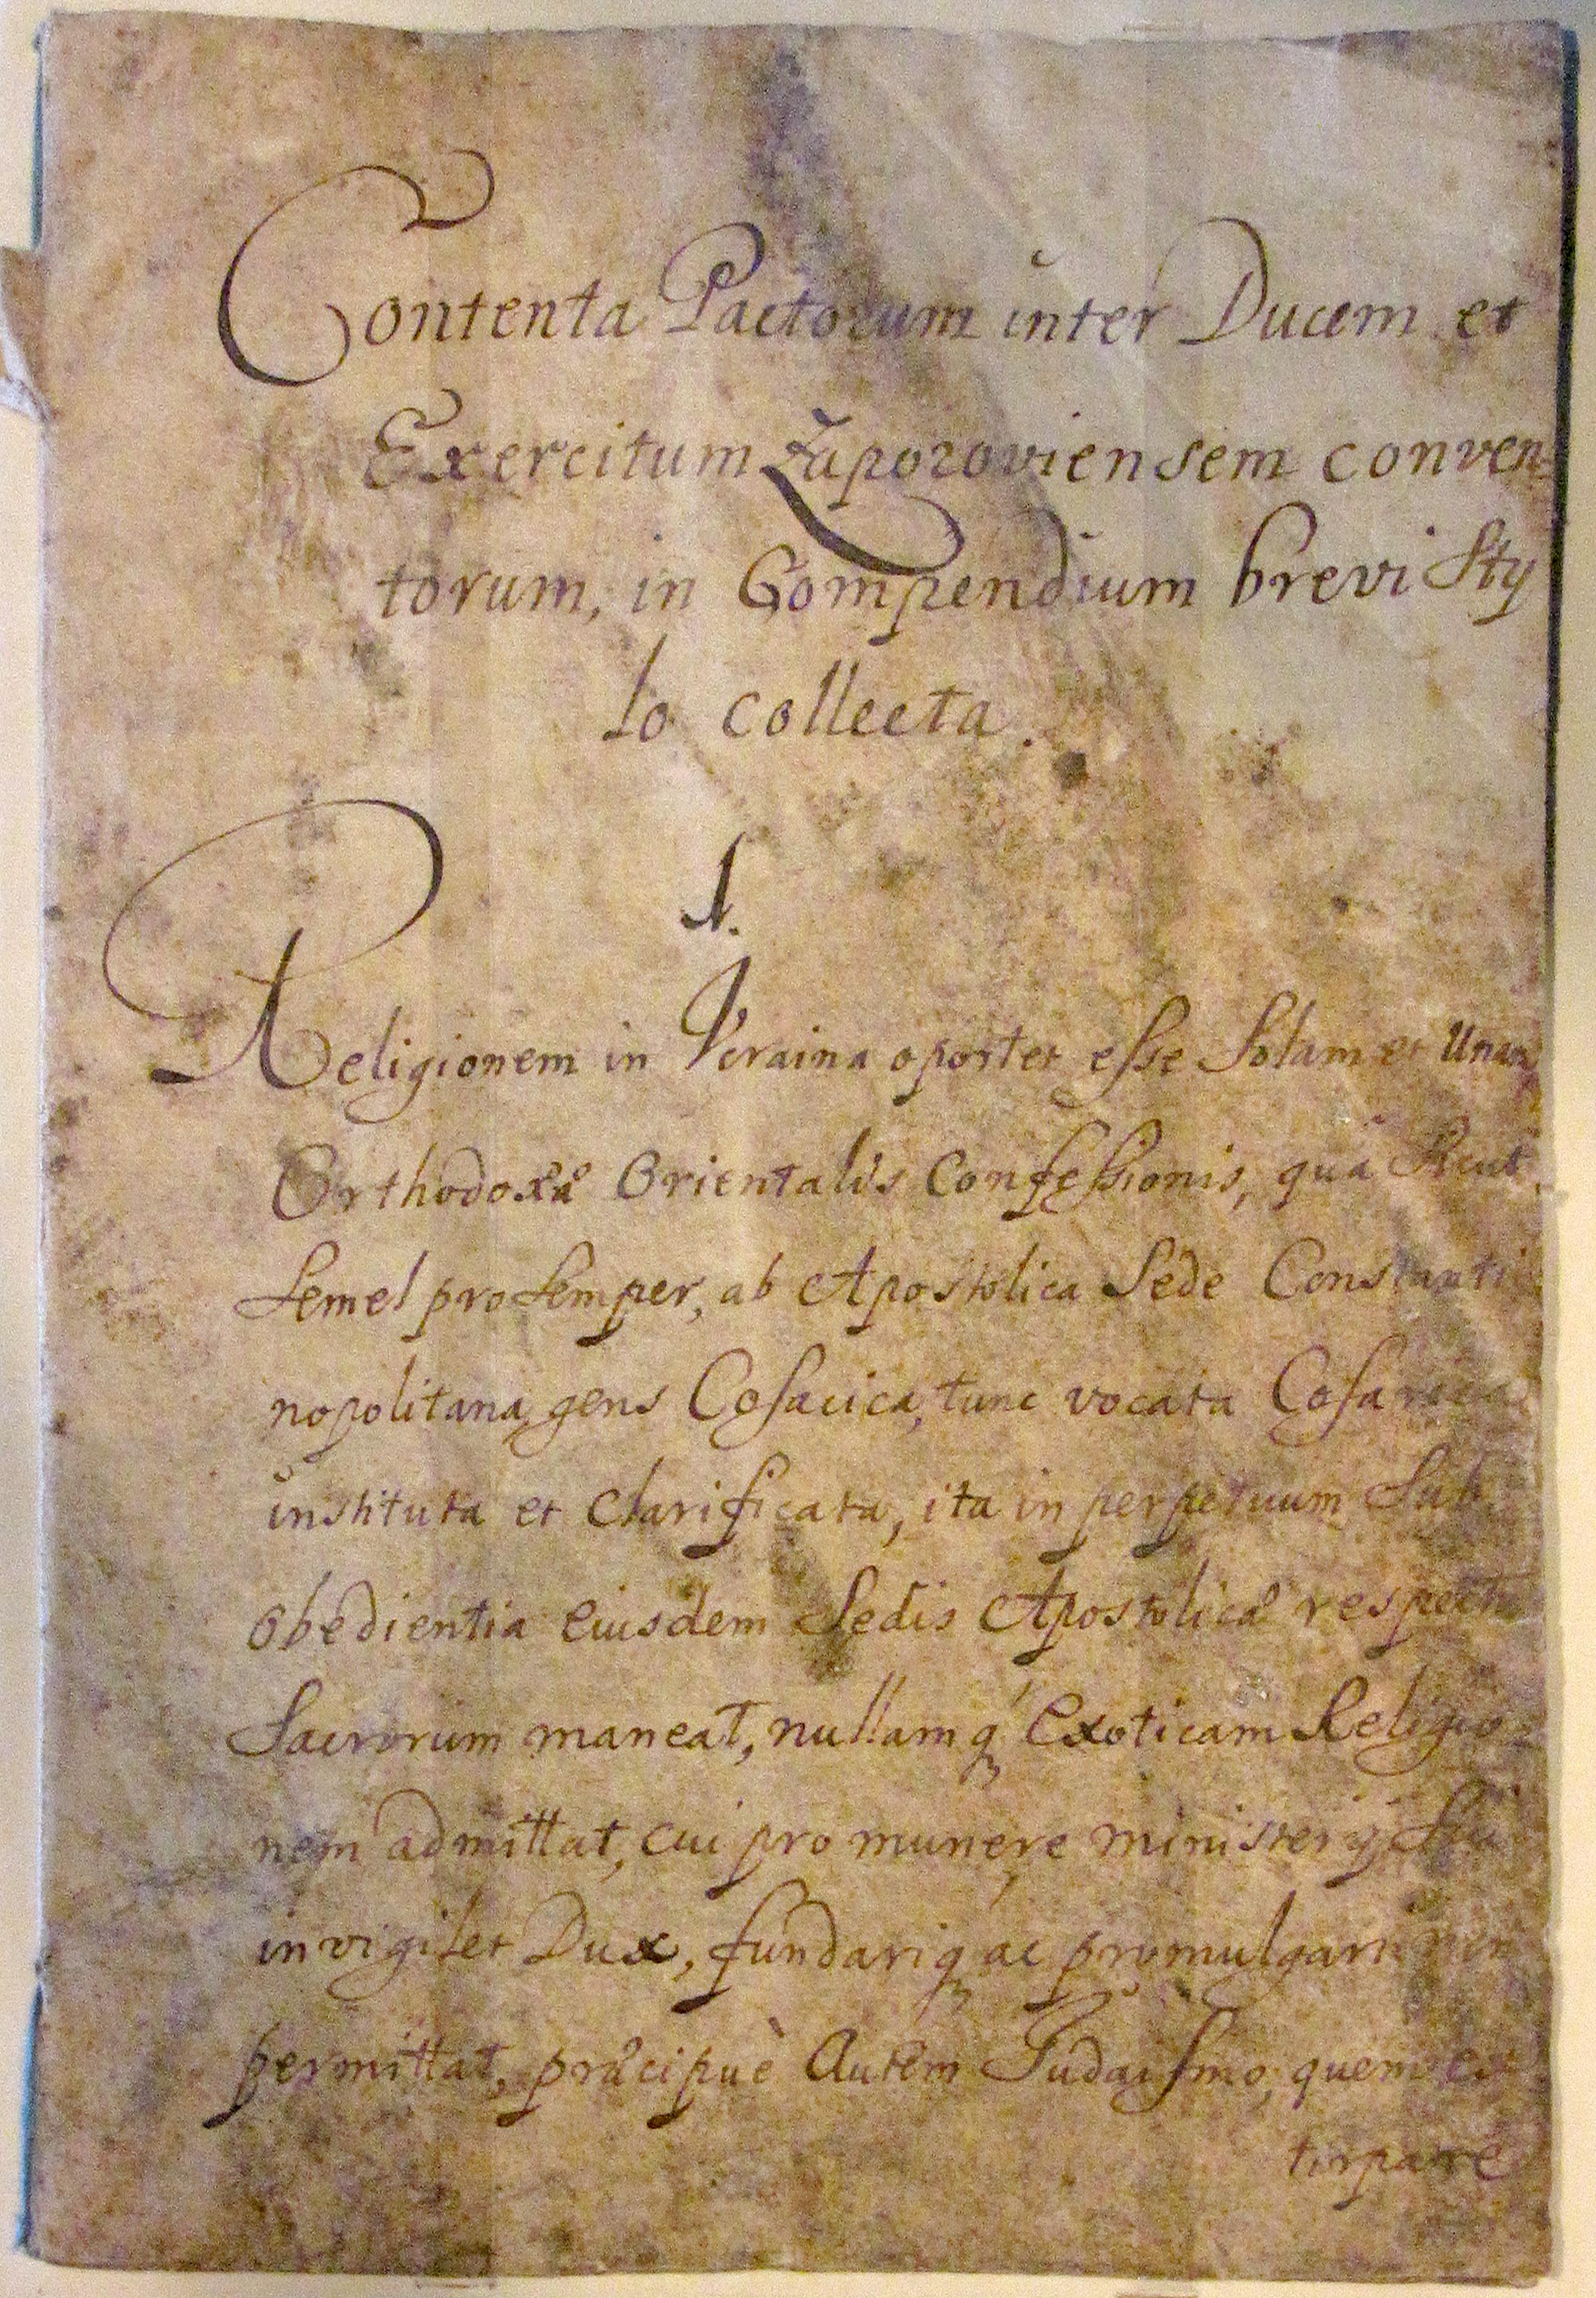 Contenta Pactorum inter Ducem et
Exercitum Zaporoviensem conven=
torum, in Compendium brevi Sty
lo collecta.
1.
Religionem in Vcraina oportet esse Solam et Unam
Orthodoxæ Orientalis Confessionis, qua Sicut
Semel pro Semper, ab Apostolica Sede Constanti
nopolitana, gens Cosacica, tunc vocata Cosarica
instituta et Clarificata, ita in perpetuum Sub
obedientia eiusdem Sedis Apostolicæ respectu
Sacrorum maneat, nullamq́ Exoticam Religio=
nem admittat, cui pro munere ministerij Sui
invigilet Dux, fundariq́ ac promulgari non
permittat, præcipuè Autem Judaismo, quem ex
tirpare